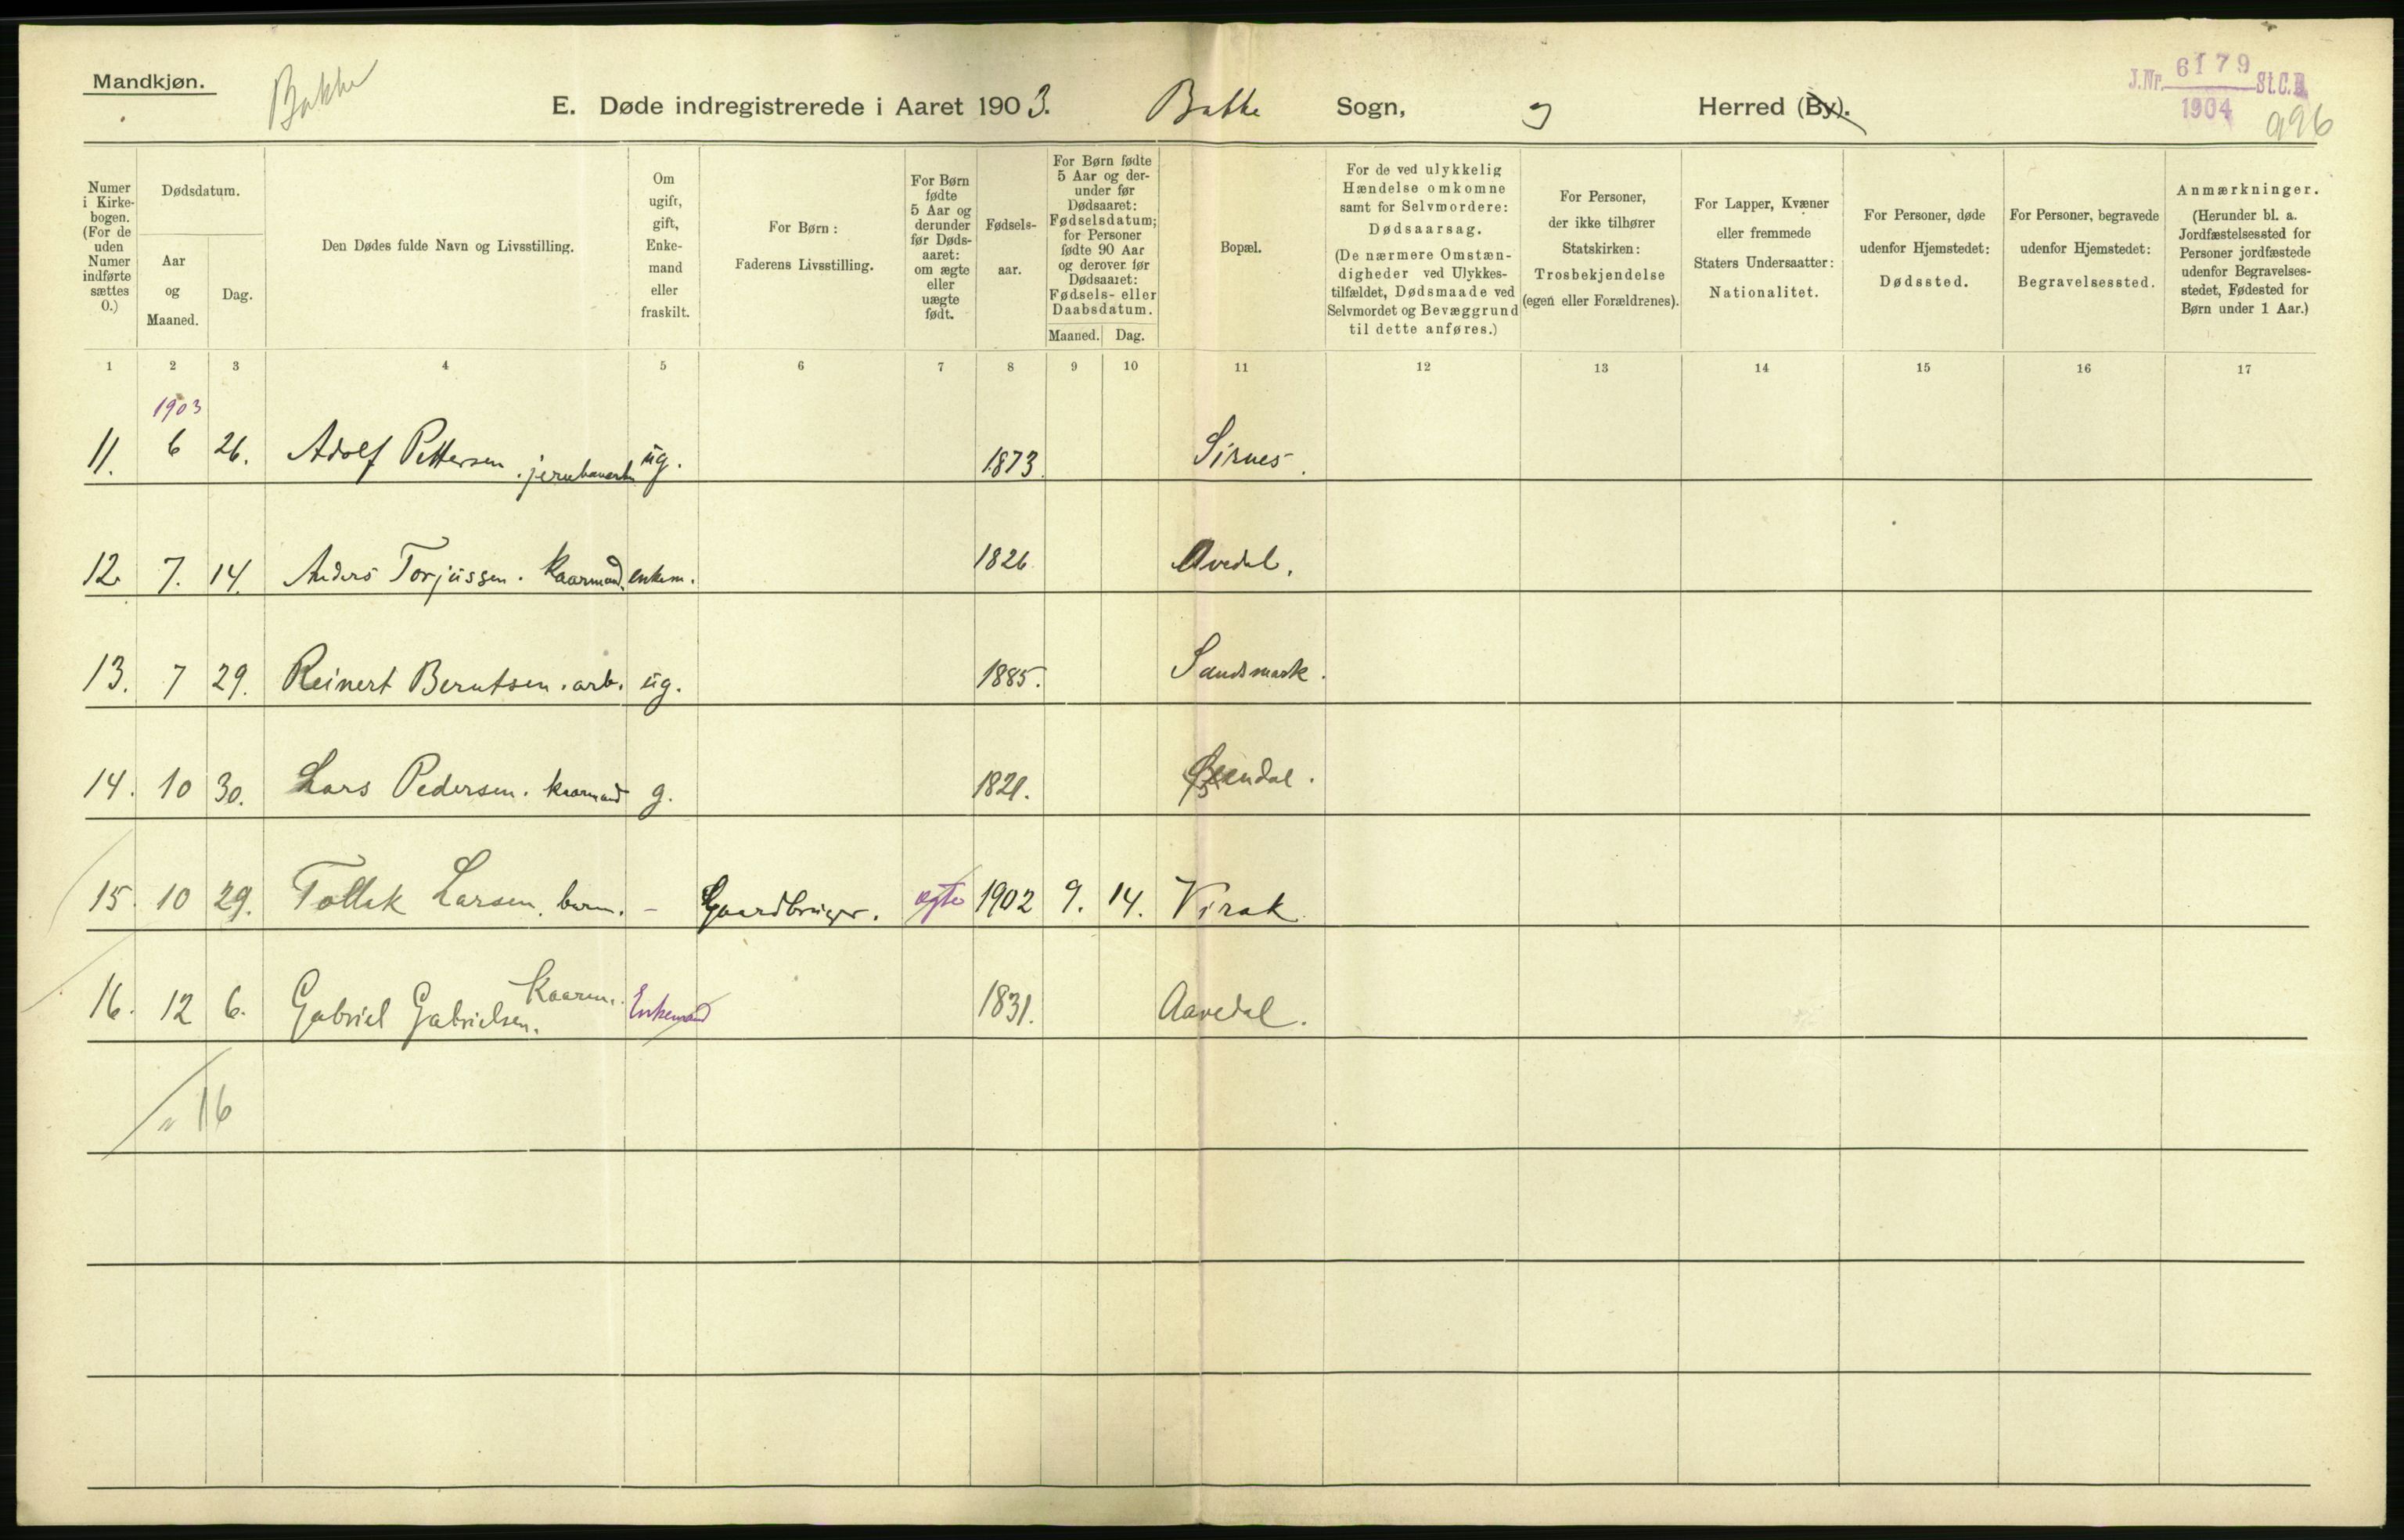 Mandkjøn.
Bakke
E. Døde indregistrerede i Aaret 1903. Bakke Sogn, og Herred (By).
J.Nr. 6179 St.C.B.
1904
996
Numer i Kirke-bogen. (For de uden Numer indførte sættes 0.)
Dødsdatum.
Aar og Maaned.
Dag.
Den Dødes fulde Navn og Livsstilling.
Om ugift, gift, Enke-mand eller fraskilt.
For Børn: Faderens Livsstilling.
For Børn fødte 5 Aar og derunder før Døds-aaret: om ægte eller uægte født.
Fødsels-aar.
For Børn fødte 5 Aar og der-under før Dødsaaret: Fødselsdatum; for Personer fødte 90 Aar og derover før Dødsaaret: Fødsels- eller Daabsdatum.
Maaned. Dag.
Bopæl.
For de ved ulykkelig Hændelse omkomne samt for Selvmordere: Dødsaarsag. (De nærmere Omstæn-digheder ved Ulykkes-tilfældet, Dødsmaade ved Selvmordet og Bevæggrund til dette anføres.)
For Personer, der ikke tilhører Statskirken: Trosbekjendelse (egen eller Forældrenes).
For Lapper, Kvæner eller fremmede Staters Undersaatter: Nationalitet.
For Personer, døde udenfor Hjemstedet: Dødssted.
For Personer, begravede udenfor Hjemstedet: Begravelsessted.
Anmærkninger. (Herunder bl. a. Jordfæstelsessted for Personer jordfæstede udenfor Begravelses-stedet, Fødested for Børn under 1 Aar.)
1 2 3 4 5 6 7 8 9 10 11 12 13 14 15 16 17
1903
11. 6 26. Adolf Pettersen. ug. 1873. Sirnes.
12. 7. 14. Anders Torjussen. Kaarmand. enkem. 1826 Avedal.
13. 7 29. Reinert Berntsen. arb. ug. 1885. Sandsmark.
14. 10 30. Lars Pedersen. kaarmand g. 1821.
15. 10 29. Tollak Larsen. barn. - Gaardbruger. ægte 1902 9. 14. Virak.
16. 12 6. Gabriel Gabrielsen. Kaarm. Enkemand 1831. Aavedal.
16